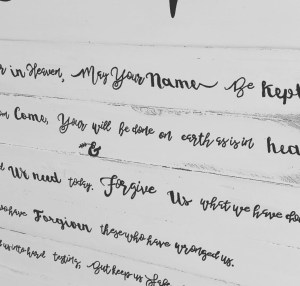 in Heaven, May Your Name Be Kept
Come, Your will be done on earth as is in hea
&
We need today. Forgive Us what we have don
have Forgiven those who have wronged us.
into hard testing, But keep us Safe